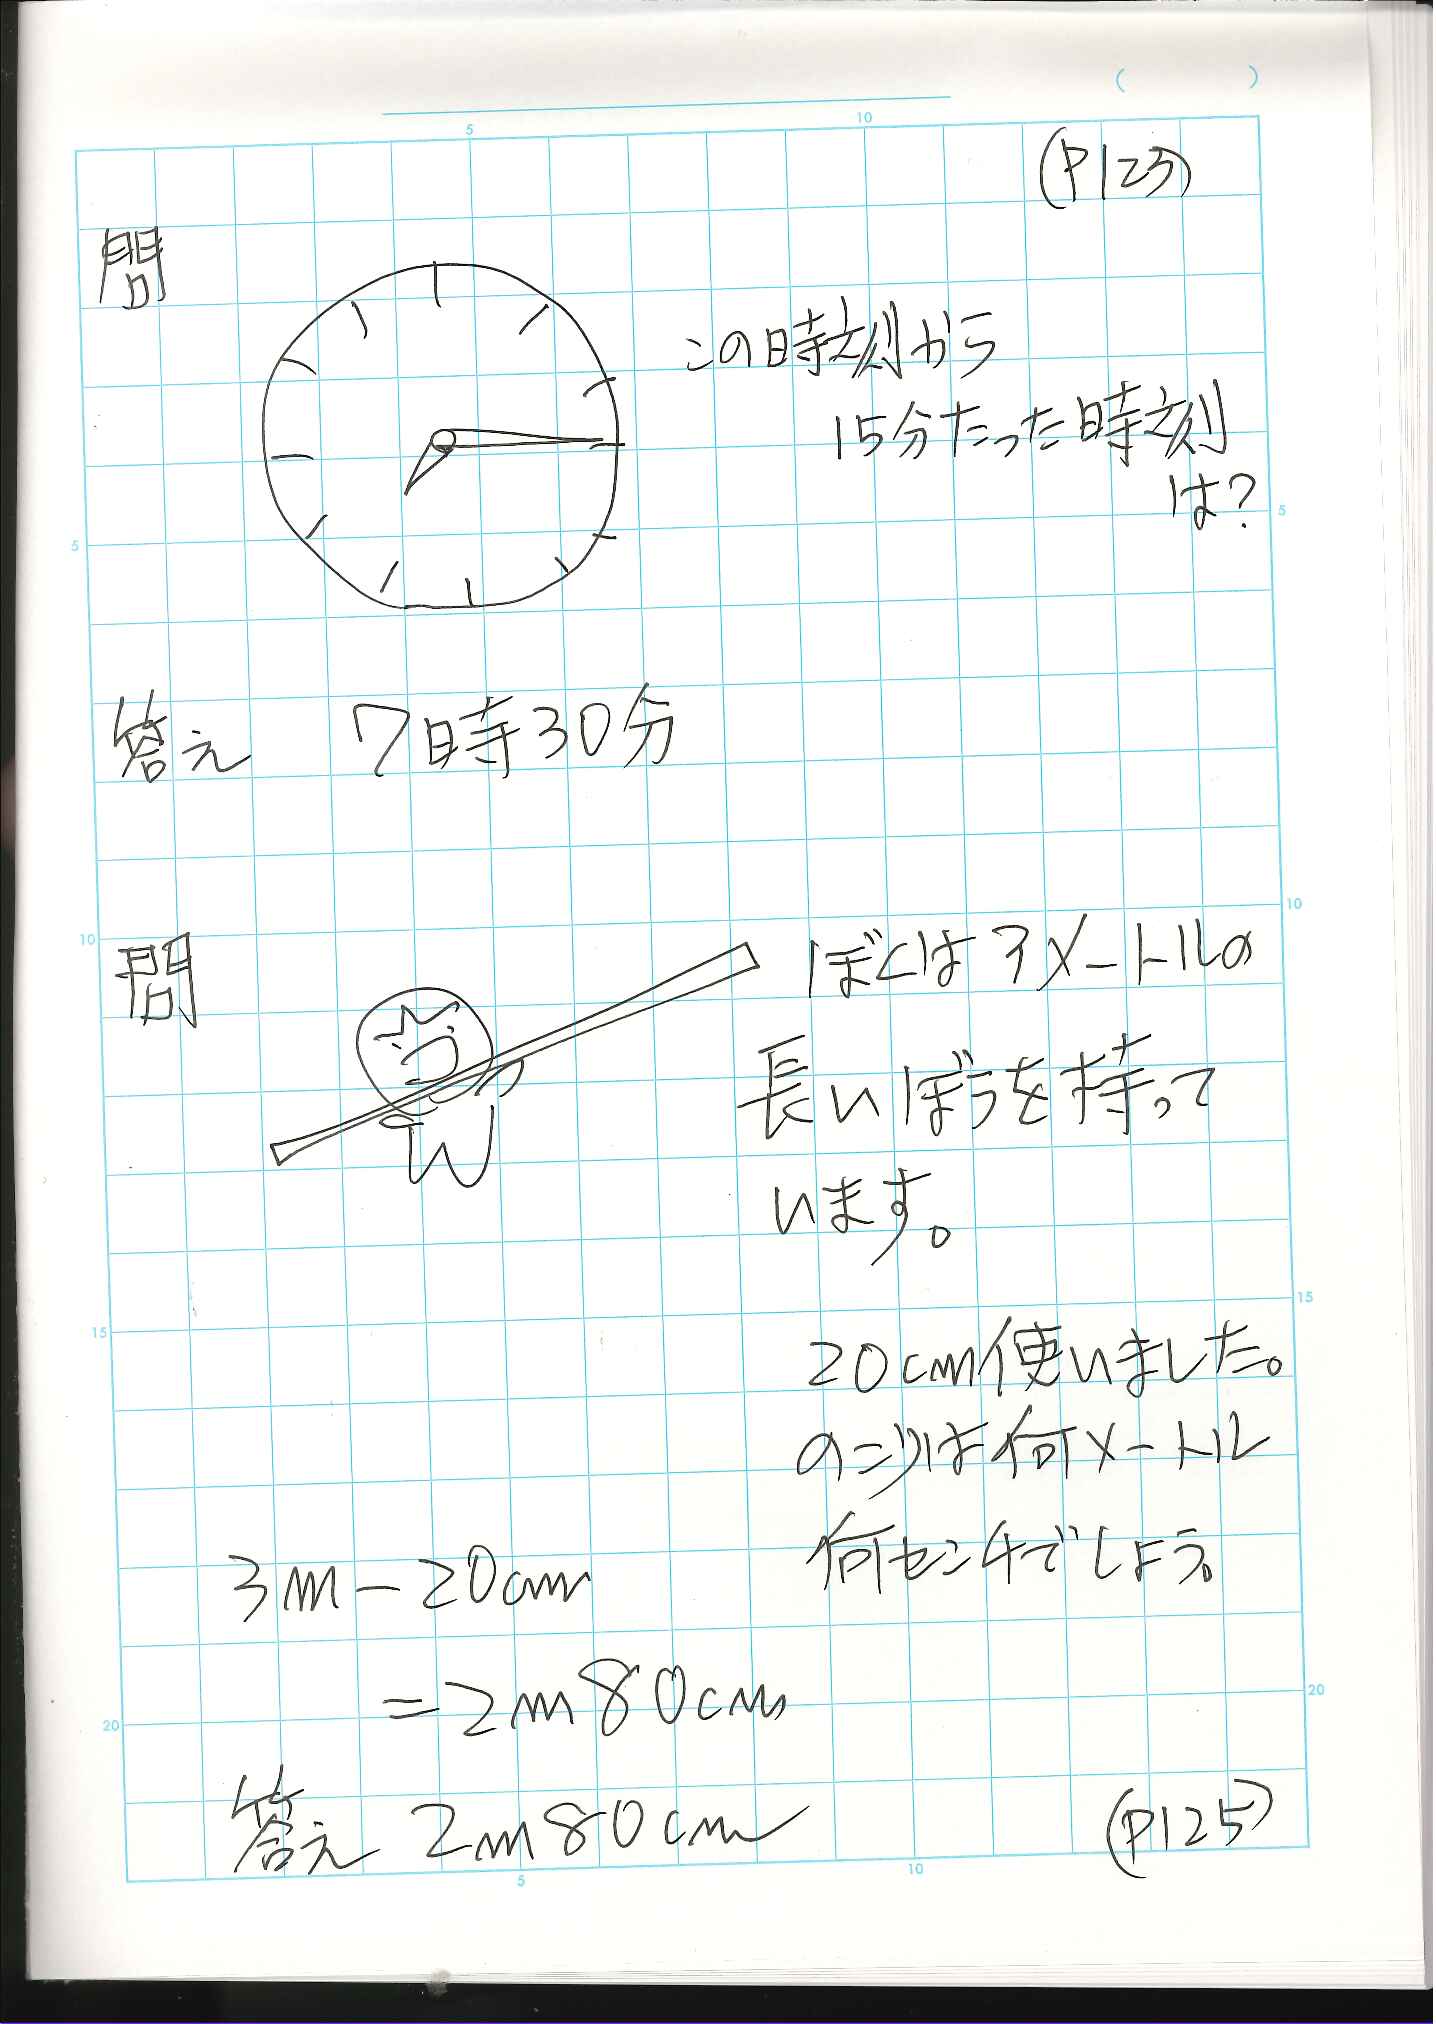 ( )
5
10
(P125)
問
この時刻から
15分たった時刻
は?
5
5
答え 7時30分
10
10
問
ぼくは3メートルの
長いぼうを持って
います。
15
15
20cm使いました。
のこりは何メートル
何センチでしょう。
3m-20cm
=2m80cm
20
20
答え 2m80cm
(P125)
5
10